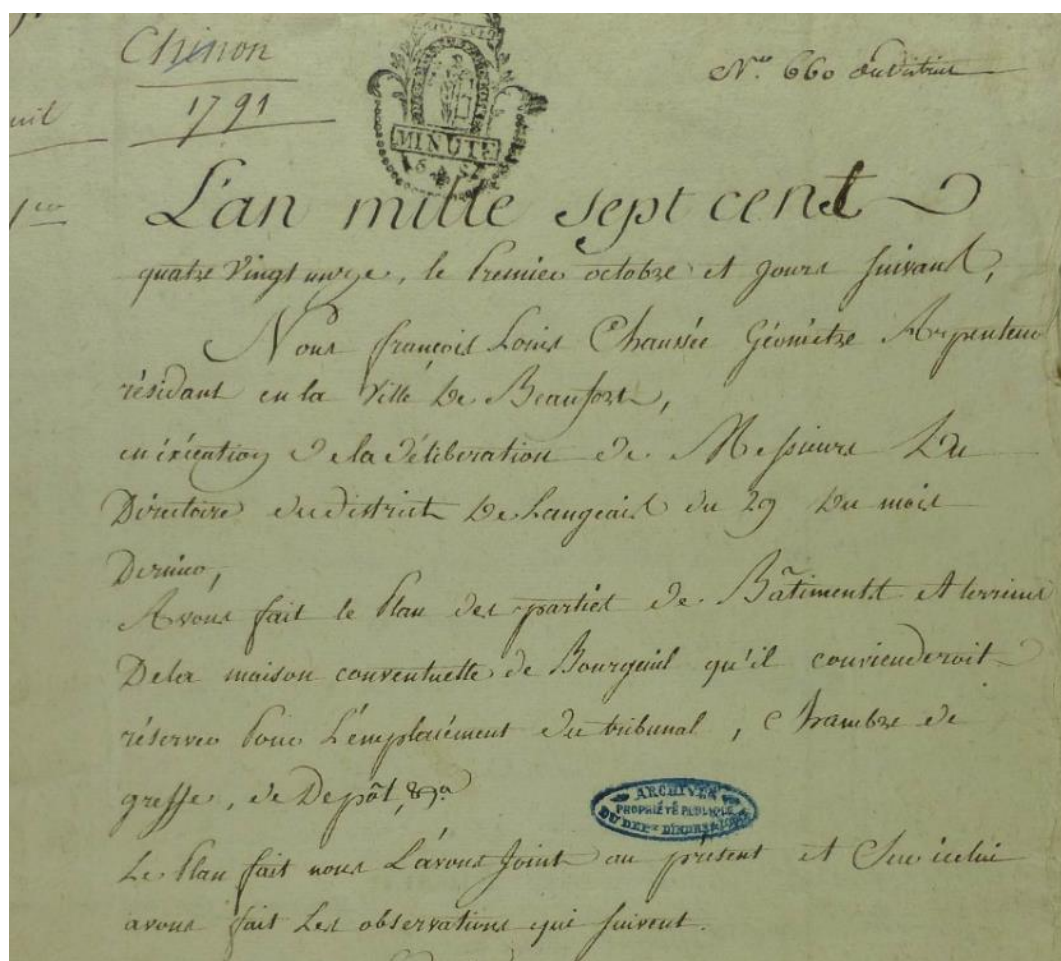 Chinon
1791
N.º 660 du district
MINUTE
L'an mille sept cent
quatre Vingt unze, le Premier octobre et jours suivant,
Nous françois Louis Chaussée Géomètre Arpenteur
résidant en la Ville De Beaufort,
en éxécution De la déliberation De Messieurs Du
Directoire du district De Langeais du 29 Du mois
Dernier,
Avons fait le Plan des partiés De Bâtiments et terreins
Dela maison conventuelle de Bourgeuil qu'il conviendroit
réserver Pour L'emplacément Du tribunal, Chambre de
greffe, de Depôt, &ca
ARCHIVES
PROPRIÉTÉ PUBLIQUE
DU DEPt D'INDRE & LOIRE
Le Plan fait nous L'avons Joint au présent et Sur icelui
avons fait Les observations qui suivent.